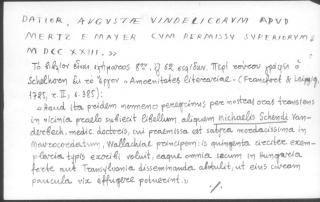 DATIOR, AUGUSTÆ VINDELICORUM APUD
MERTZ E MAYER CUM PERMISSU SUPERIORUM
M DCC XXIII. »
Τὸ βιβλίον εἶναι σχήματος 8ον, ἐξ 62 σελίδων. Περὶ τούτου γράφει ὁ
Schelhorn εἰς τὸ ἔργον «Amoenitates literariae» (Francfort & Leipzig,
1725, τ. II, σ. 385):
«Haud ita pridem nomenc peregrinus per nostras oras transiens
in vicinia praelo subiecit libellum aliquem Michaelis Schendi Van-
derbech. medic. doctoris, cui praemissa est satyra mordacissima in
Mavrocordatum, Wallachiae principem: is quingenta circiter exem-
plaria typis exscribi voluit, eaque omnia secum in Hungaria
forte aut Transylvania disseminanda abstulit, ut eius civeam
paucula vix effugere potuerint.»
./.